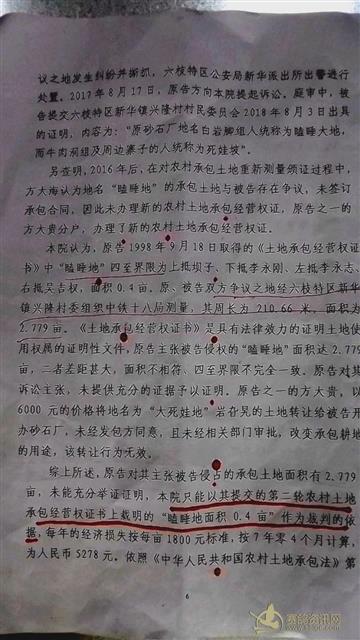 议之地发生纠纷并撕抓，六枝特区公安局新华派出所出警进行
处置。2017年8月17日，原告方向本院提起诉讼。庭审中，被
告提交六枝特区新华镇兴隆村村民委员会2018年8月3日出具
的证明，内容为：“原砂石厂地名白岩脚组人统称为瞌睡大地，
而牛肉洞组及周边寨子的人统称为死娃坡”。
另查明，2016年后，在对农村承包土地重新测量颁证过程中，
方大海认为地名“瞌睡地”的承包土地与被告存在争议，未签订
承包合同，因此未办理新的农村土地承包经营权证，原告之一的
方大贵分户，办理了新的农村土地承包经营权证。
本院认为，原告1998年9月18日取得的《土地承包经营权证
书》中“瞌睡地”四至界限为上抵坝子、下抵李永刚、左抵李永志、
右抵吴吉权，面积0.4亩。原、被告双方争议之地经六枝特区新华
镇兴隆村委组织中铁十八局测量，其周长为210.66米，面积为
2.779亩。《土地承包经营权证书》是具有法律效力的证明土地使
用权属的证明性文件，原告主张被告侵权的“瞌睡地”面积达2.779
亩，二者差距甚大，面积不相符、四至界限不完全一致。原告对其
诉讼主张，未提供充分的证据予以证明。原告之一的方大贵，以
6000元的价格将地名为“大死娃地”岩旮旯的土地转让给被告用
办砂石厂，未经发包方同意，且未经相关部门审批，改变承包耕地
的用途，该转让行为无效。
综上所述，原告对其主张被告侵占的承包土地面积有2.779
亩，未能充分举证证明，本院只能以其提交的第二轮农村土地
承包经营权证书上载明的“瞌睡地面积0.4亩”作为裁判的依
据，每年的经济损失按每亩1800元标准，按7年零4个月计算，
为人民币5278元。依照《中华人民共和国农村土地承包法》第
6